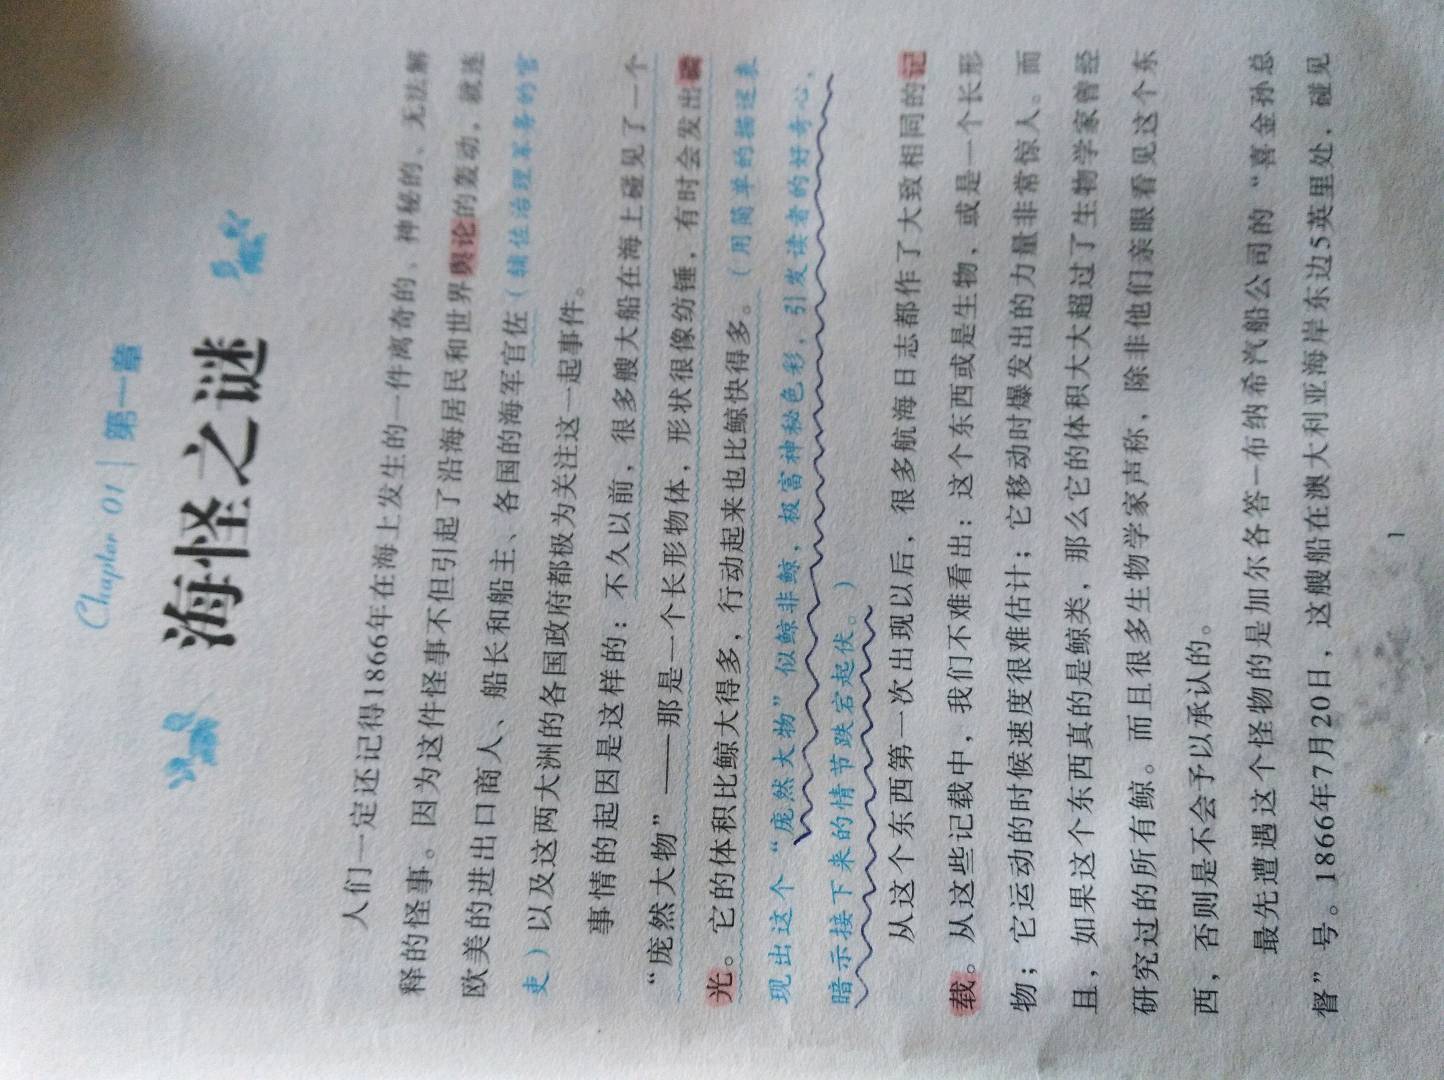 Chapter 01 | 第一章
海怪之谜
人们一定还记得1866年在海上发生的一件离奇的、神秘的、无法解
释的怪事。因为这件怪事不但引起了沿海居民和世界舆论的轰动，就连
欧美的进出口商人、船长和船主、各国的海军官佐（辅佐治理军务的官
吏）以及这两大洲的各国政府都极为关注这一起事件。
事情的起因是这样的：不久以前，很多艘大船在海上碰见了一个
“庞然大物”——那是一个长形物体，形状很像纺锤，有时会发出磷
光。它的体积比鲸大得多，行动起来也比鲸快得多。（用简单的描述表
现出这个“庞然大物”似鲸非鲸，极富神秘色彩，引发读者的好奇心，
暗示接下来的情节跌宕起伏。）
从这个东西第一次出现以后，很多航海日志都作了大致相同的记
载。从这些记载中，我们不难看出：这个东西或是生物，或是一个长形
物；它运动的时候速度很难估计；它移动时爆发出的力量非常惊人。而
且，如果这个东西真的是鲸类，那么它的体积大大超过了生物学家曾经
研究过的所有鲸。而且很多生物学家声称，除非他们亲眼看见这个东
西，否则是不会予以承认的。
最先遭遇这个怪物的是加尔各答－布纳希汽船公司的“喜金孙总
督”号。1866年7月20日，这艘船在澳大利亚海岸东边5英里处，碰见
1